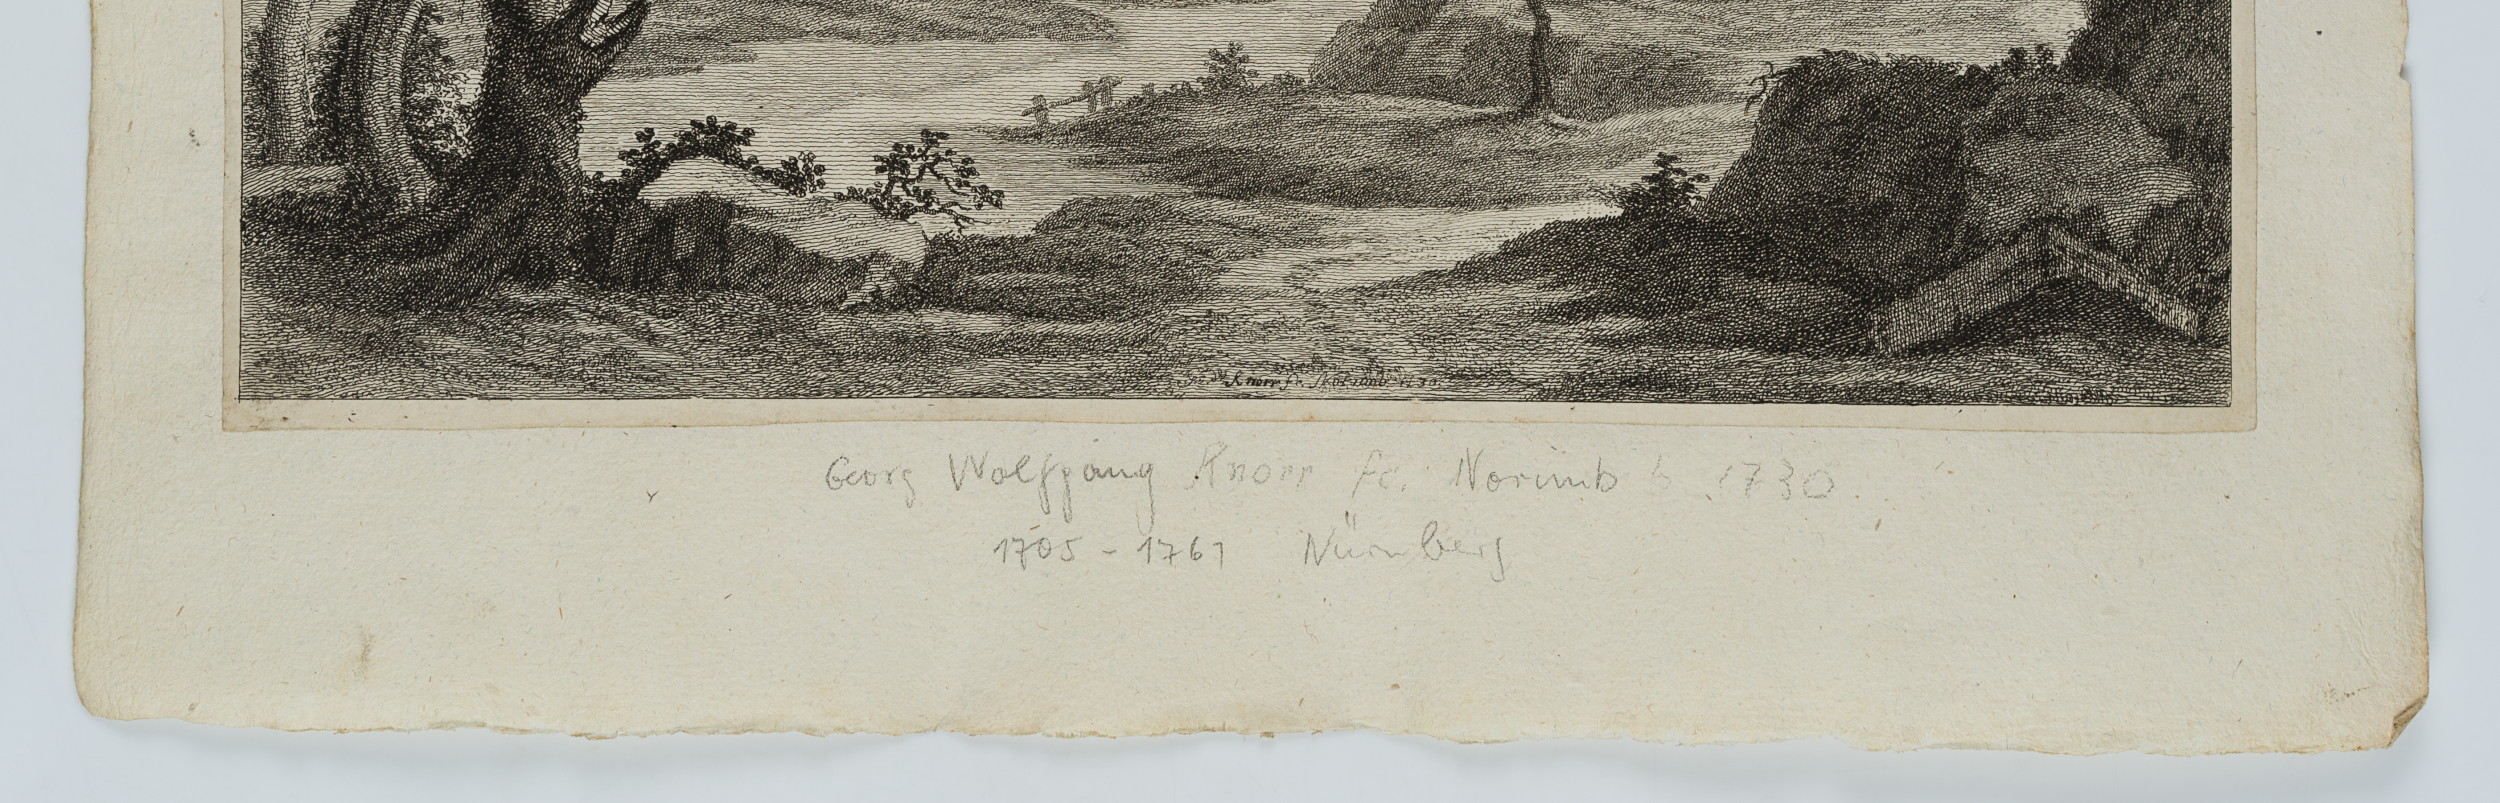 Knorr fe. Norimb. 1730.
Georg Wolfgang Knorr fe. Norimb b 1730
1705 - 1761 Nürnberg